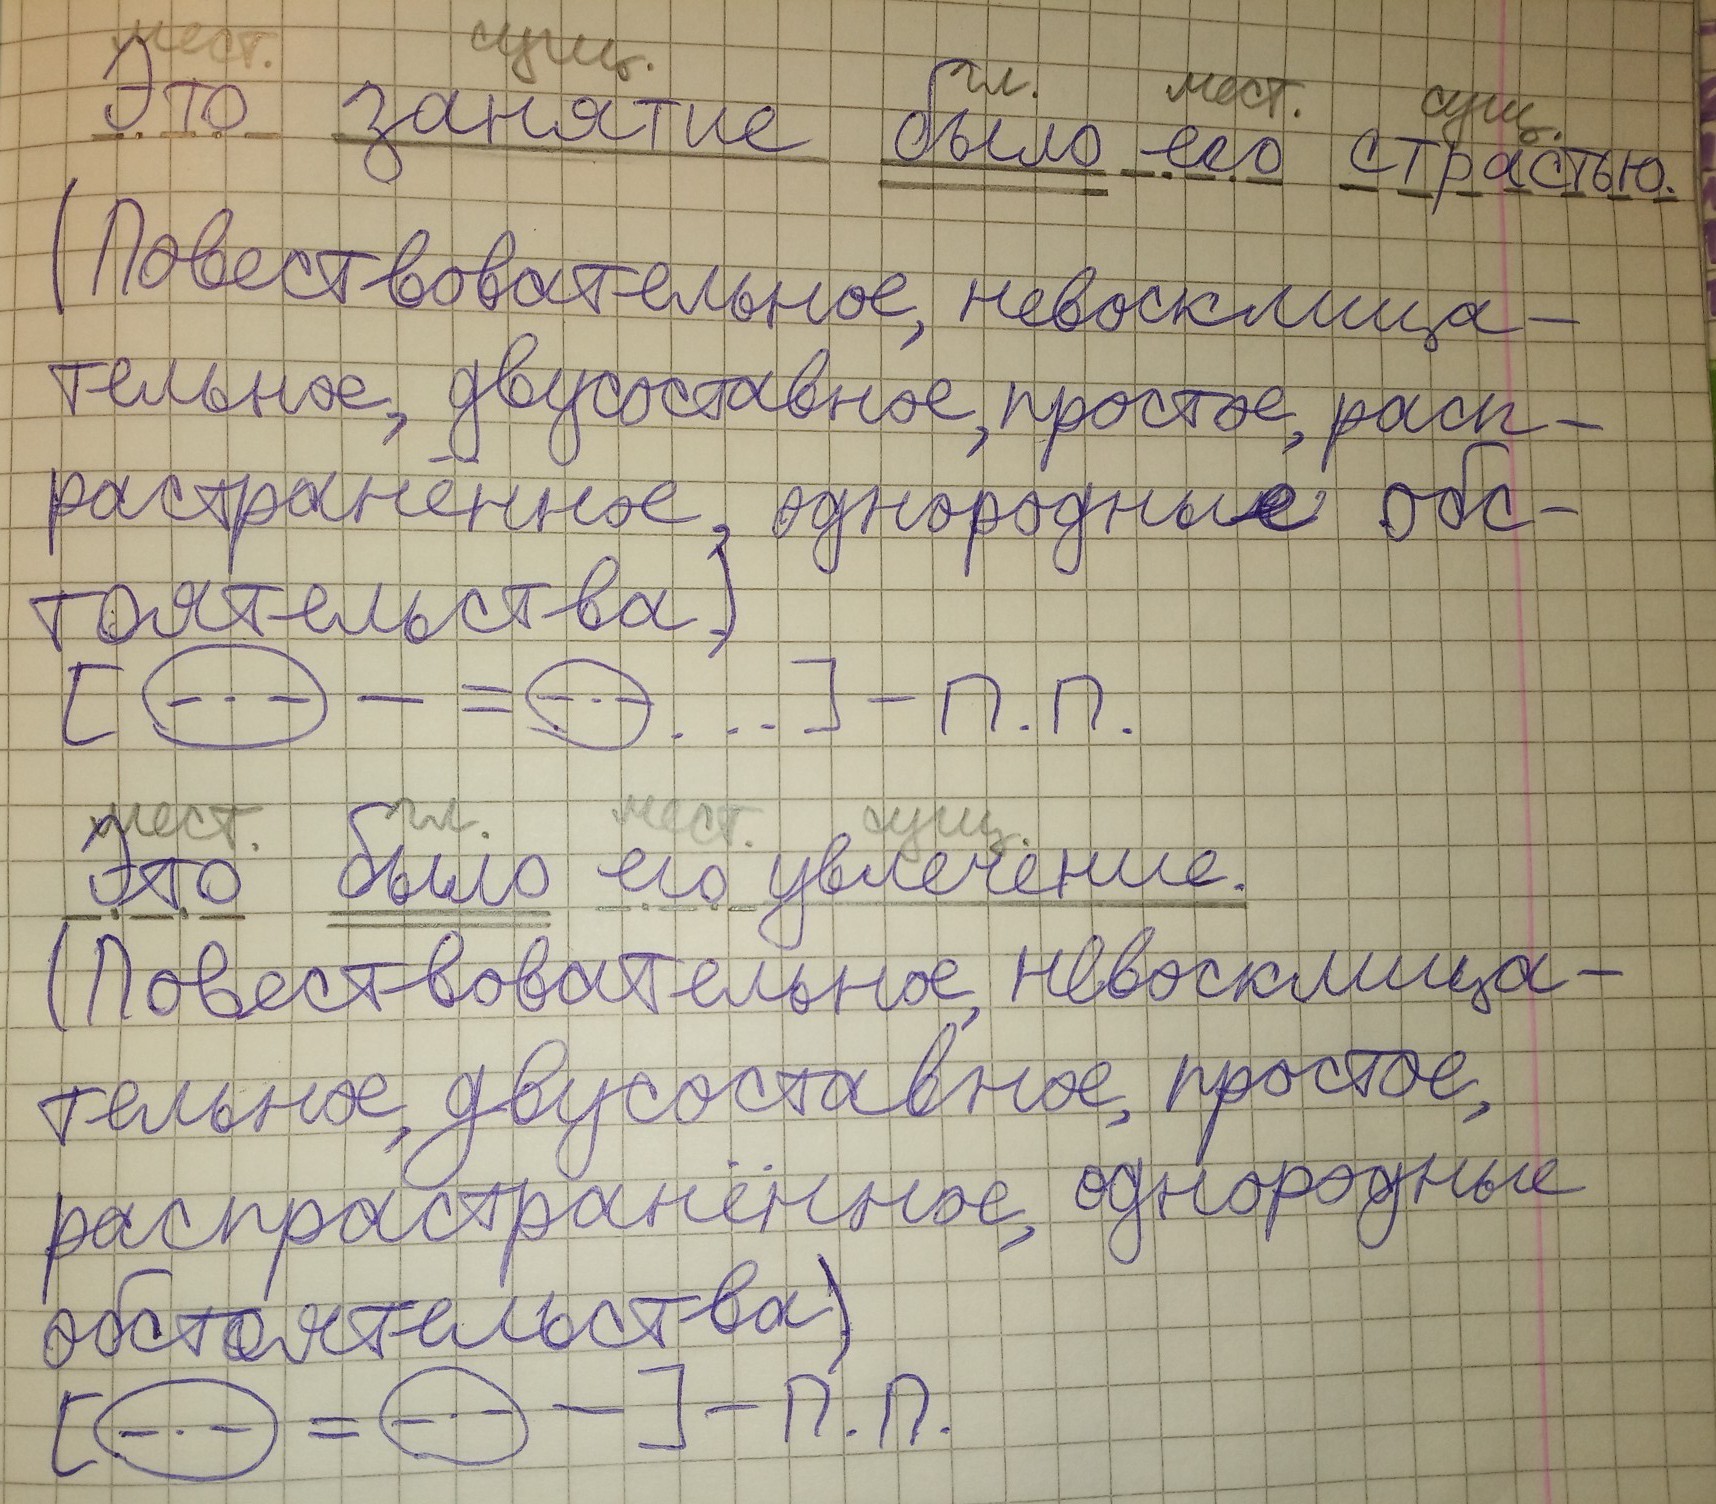 мест. сущ. гл. мест. сущ.
Это занятие было его страстью.
(Повествовательное, невосклица-
тельное, двусоставное, простое, расп-
растранённое, однородные обс-
тоятельства)
[ – = . ..] – п.п.
мест. гл. мест. сущ.
Это было его увлечение.
(Повествовательное, невосклица-
тельное, двусоставное, простое,
распрастранённое, однородные
обстоятельства)
[ = – ] – п.п.